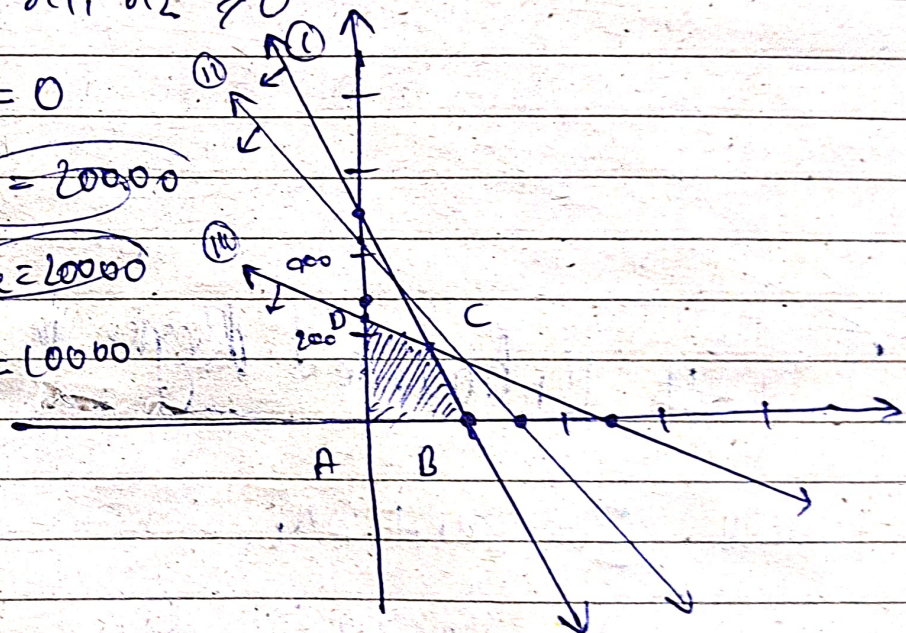 ≥0
= 0
= 20000
= 20000
= 10000
(i)
(ii)
(iii)
400
200
D
C
A
B